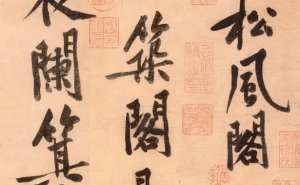 松風閣
築閣
夜闌箕